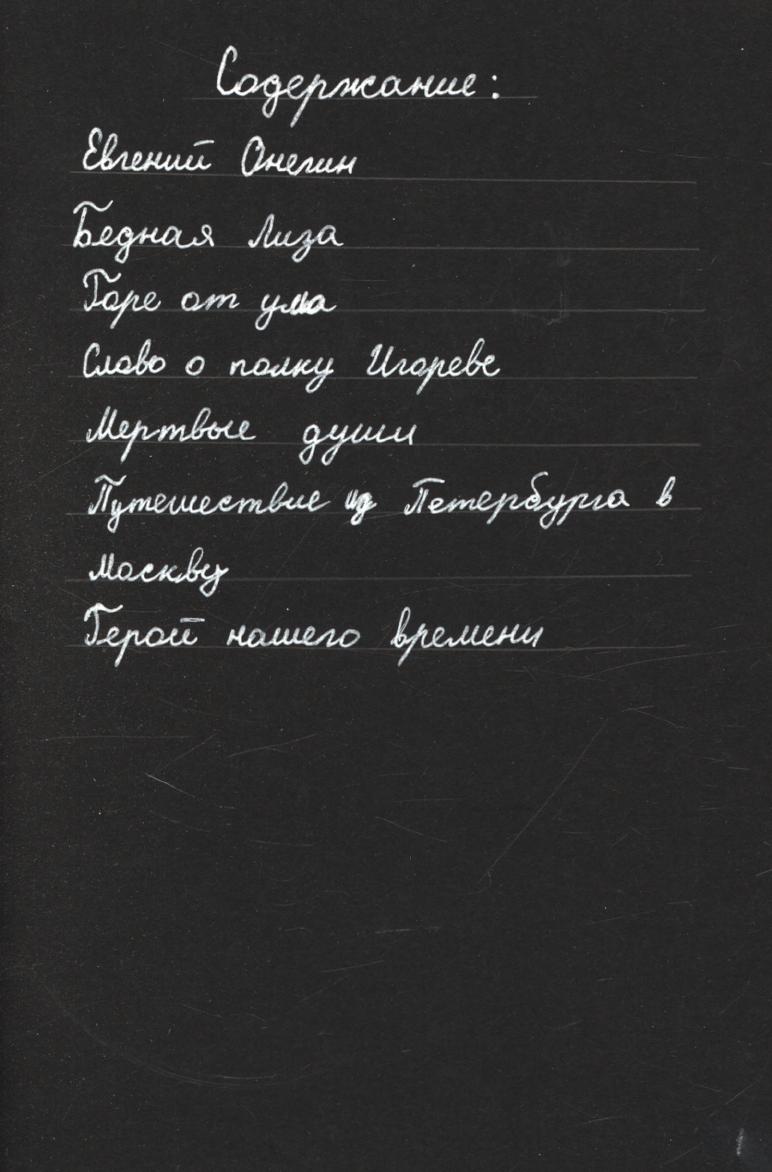 Содержание:
Евгений Онегин
Бедная Лиза
Горе от ума
Слово о полку Игореве
Мертвые души
Путешествие из Петербурга в
Москву
Герой нашего времени